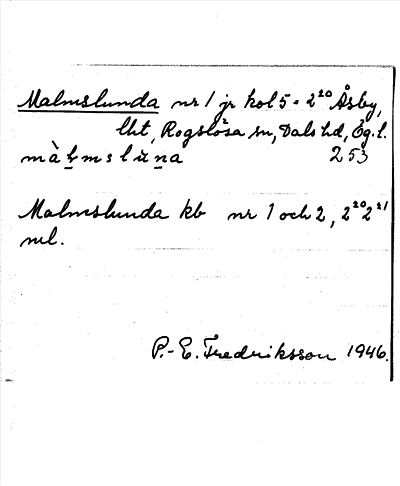 Malmslunda nr 1 jr kol 5 = 2²⁰ Åsby,
lht, Rogslösa sn, Dals hd, Ög. l.
màl̥mslùn̲a 253
Malmslunda kb nr 1 och 2, 2²⁰2²¹
ml.
P.-E. Fredriksson 1946.